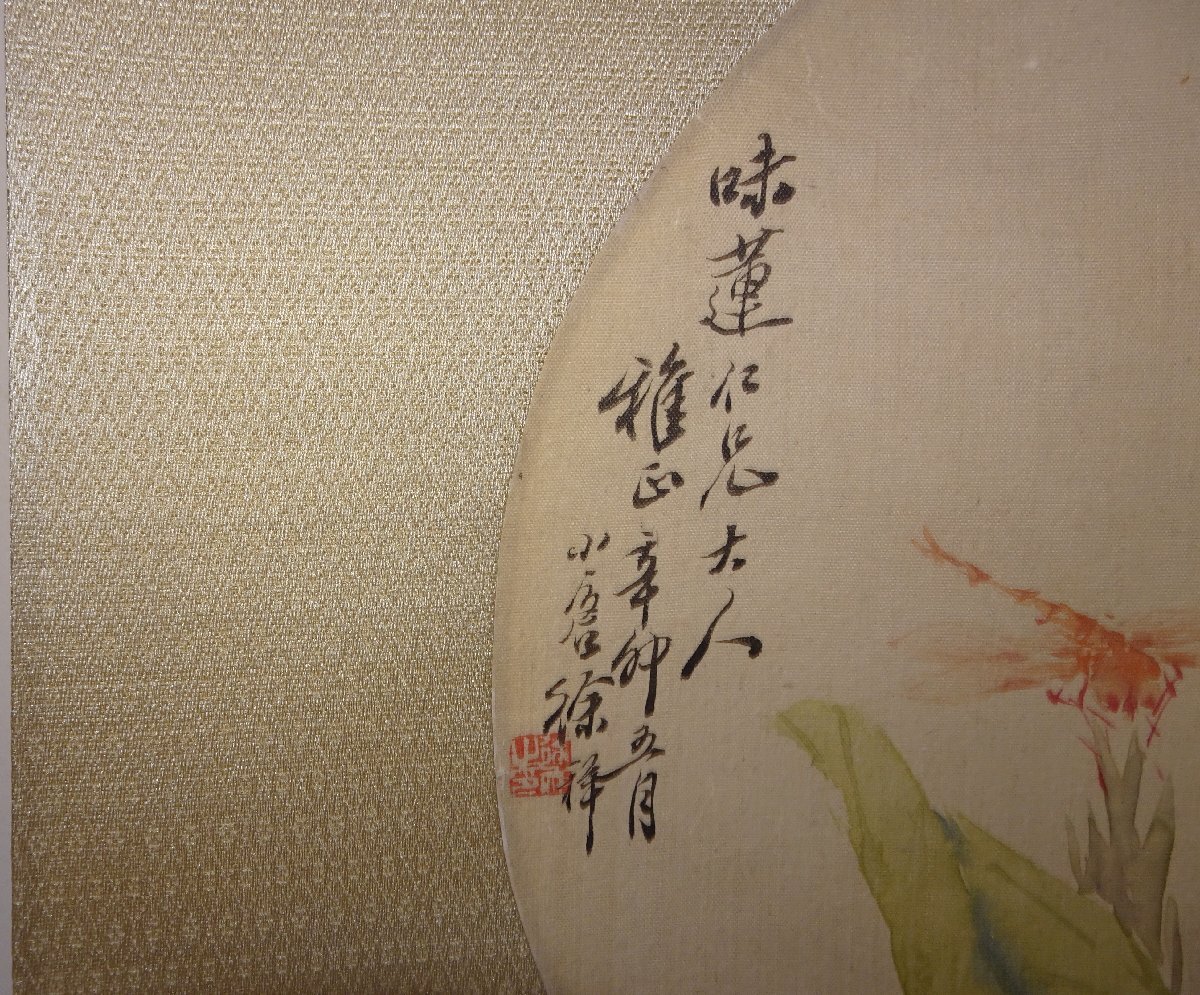 味蓮仁兄大人
雅正辛卯五月
小倉徐祥